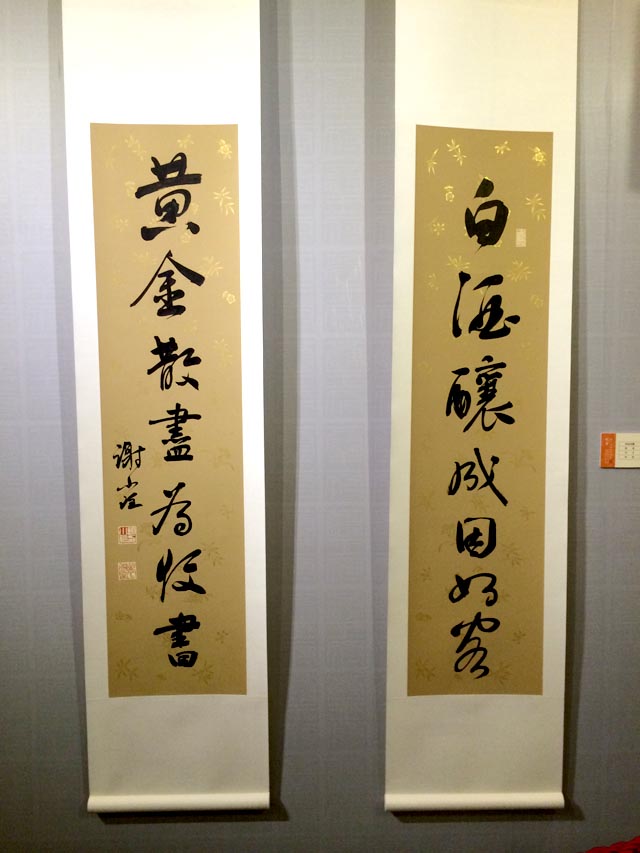 白酒釀成因好客
黃金散盡為收書